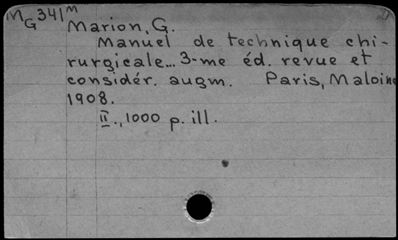 MG341M
Marion, G.
Manuel de technique chi-
rurgicale... 3-me éd. revue et
considér. augm. Paris, Maloine
1908.
II., 1000 p. ill.